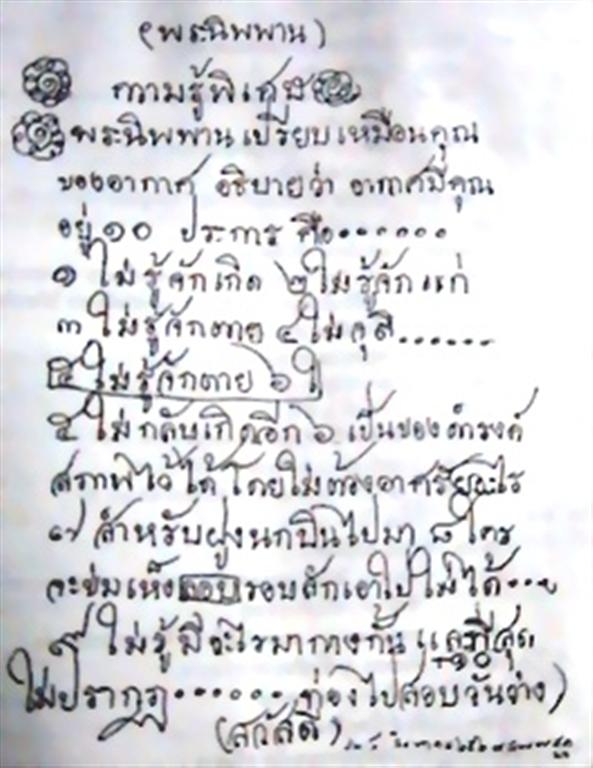 (พระนิพพาน)
ความรู้พิเศษ
พระนิพพานเปรียบเหมือนคุณ
ของอากาศ อธิบายว่า อากาศมีคุณ
อยู่ ๑๐ ประการ คือ......
๑ ไม่รู้จักเกิด ๒ ไม่รู้จักแก่
๓ ไม่รู้จักตาย ๔ ไม่จุติ......
๕ ไม่รู้จักตาย ๖ ไ
๕ ไม่กลับเกิดอีก ๖ เป็นของดำรงค์
สภาพไว้ได้โดยไม่ต้องอาศรัยอะไร
๗ สำหรับฝูงนกบินไปมา ๘ ใคร
จะข่มเห็ง รอบลักเอาไปไม่ได้...
๙ ไม่รู้มีอะไรมากางกั้น และที่สุด
๑๐
ไม่ปรากฏ...... ท่องไปสอบวันว่าง)
(สวัสดี)